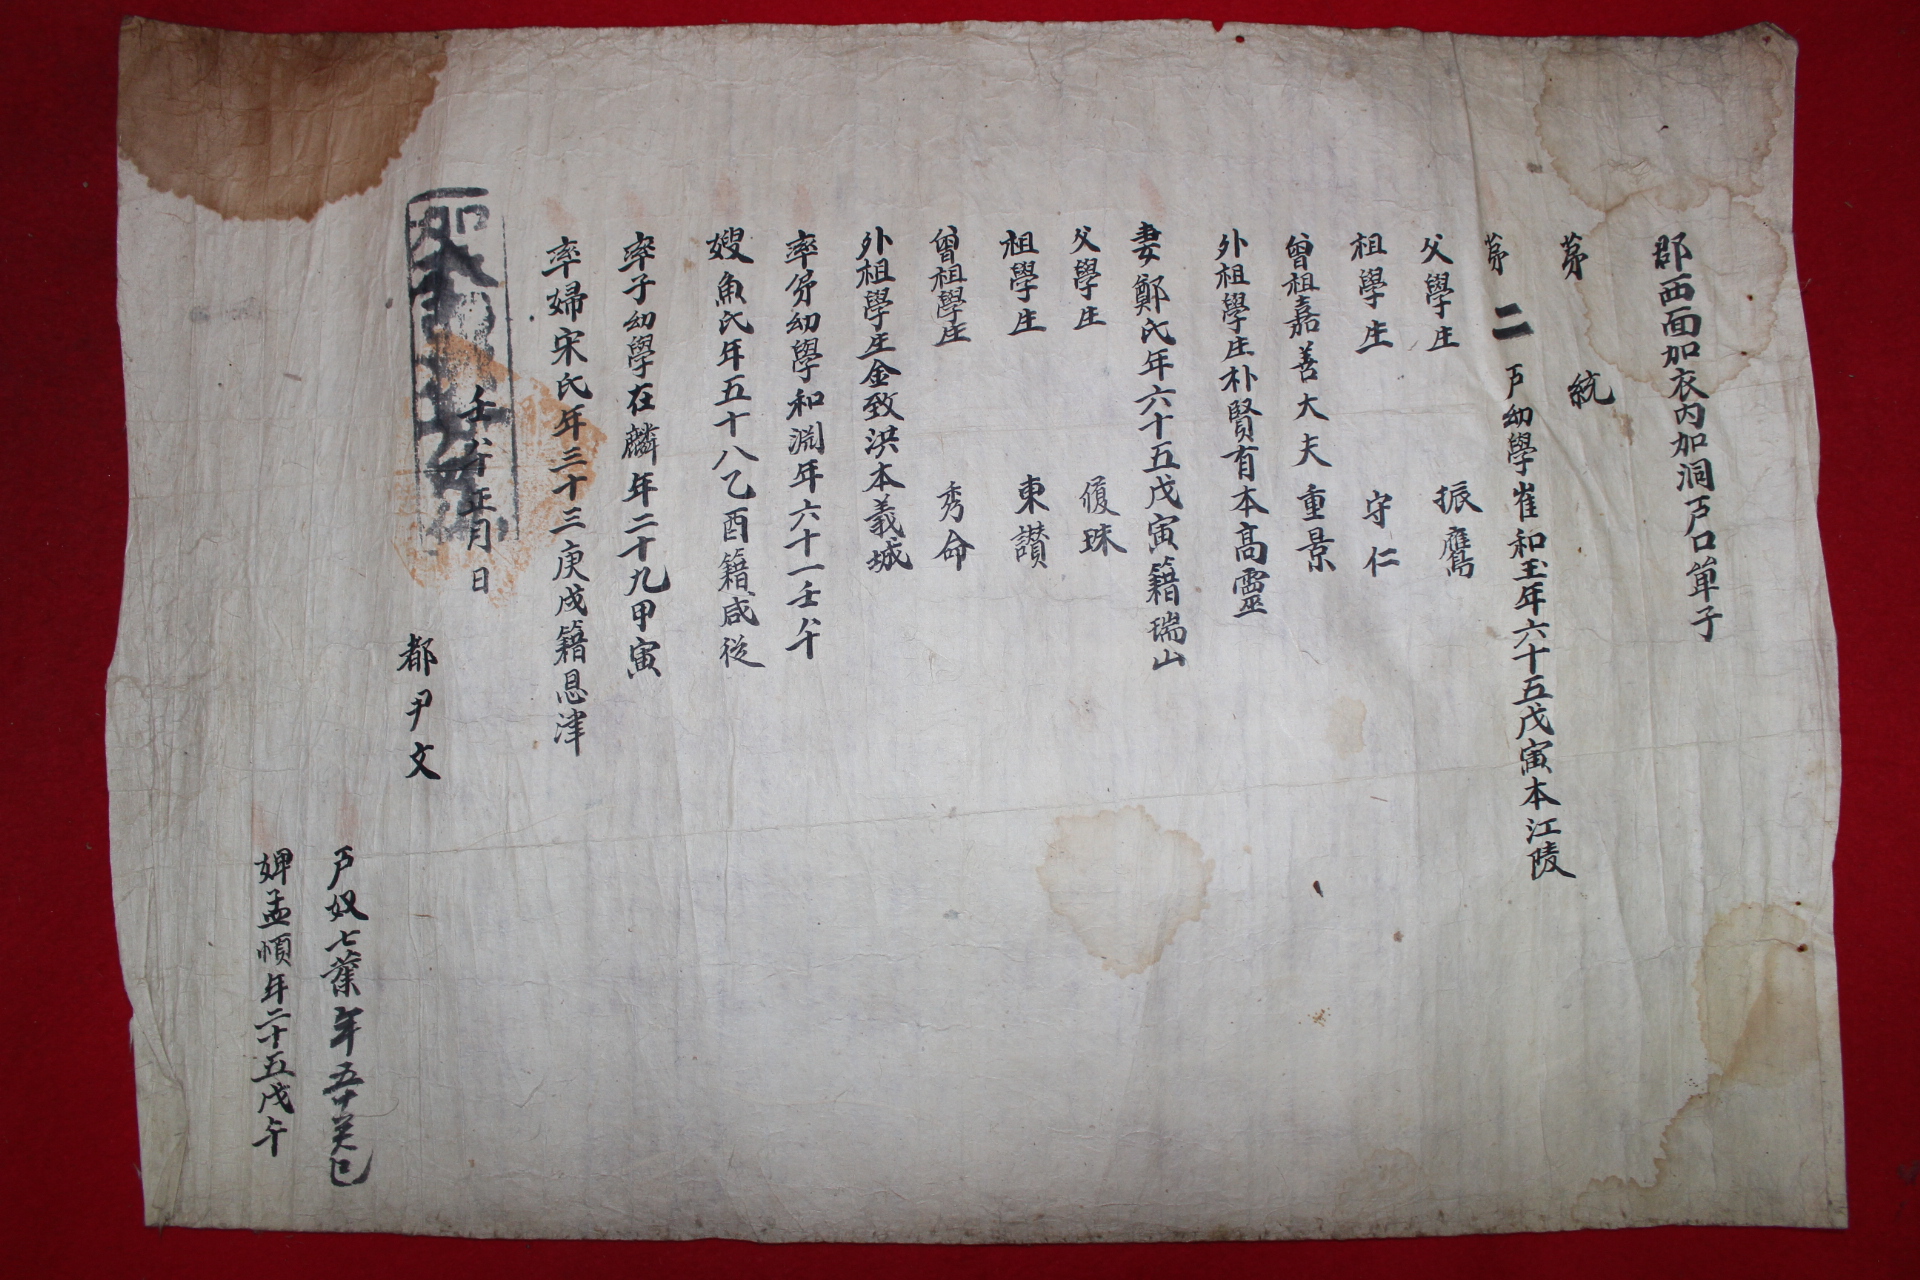 郡西面加衣內加洞戶口單子
苐　統
苐二戶幼學崔和玉年六十五戊寅本江陵
父學生　振鷹
祖學生　守仁
曾祖嘉善大夫重景
外祖學生朴賢有本高靈
妻鄭氏年六十五戊寅籍瑞山
父學生　復珠
祖學生　東讃
曾祖學生　秀命
外祖學生金致洪本義城
率弟幼學和淵年六十一壬午
嫂魚氏年五十八乙酉籍咸從
率子幼學在麟年二十九甲寅
率婦宋氏年三十三庚戌籍恩津
壬午正月　日
都尹文
戶奴七葉年五十癸巳
婢孟順年二十五戊午